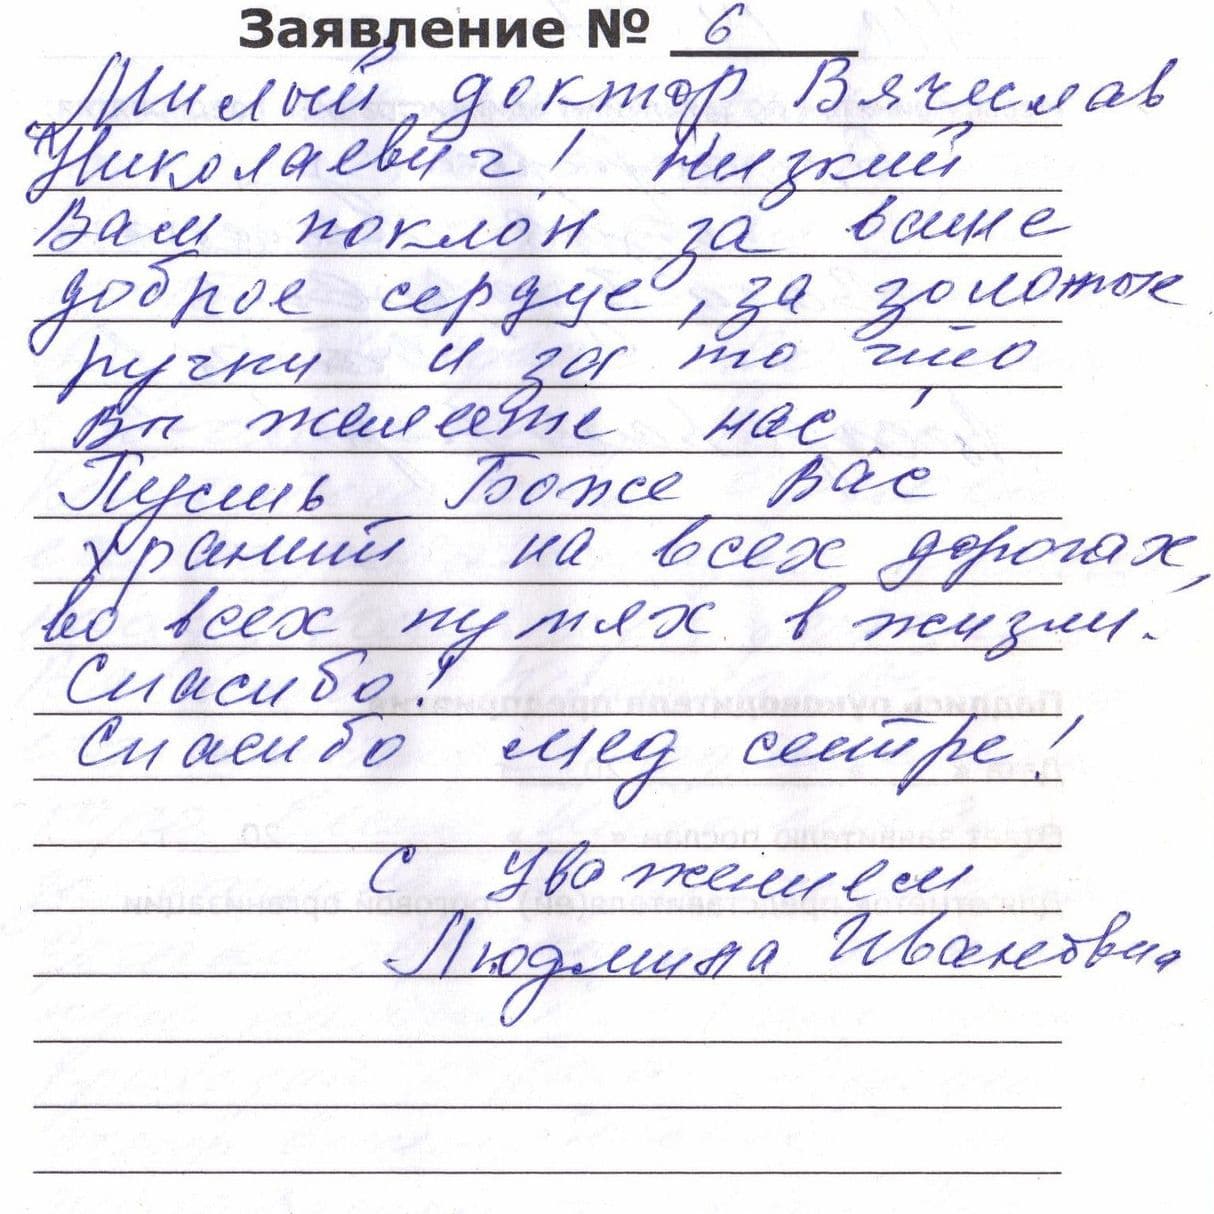 Заявление № 6
Милый доктор Вячислав
Николаевич! Низкий
Вам поклон за ваше
доброе сердце, за золотые
ручки и за то что
вы жалеете нас!
Пусть Боже Вас
хранит на всех дорогах,
во всех путях в жизни.
Спасибо!
Спасибо мед сестре!
С уважением
Людмила Ивановна